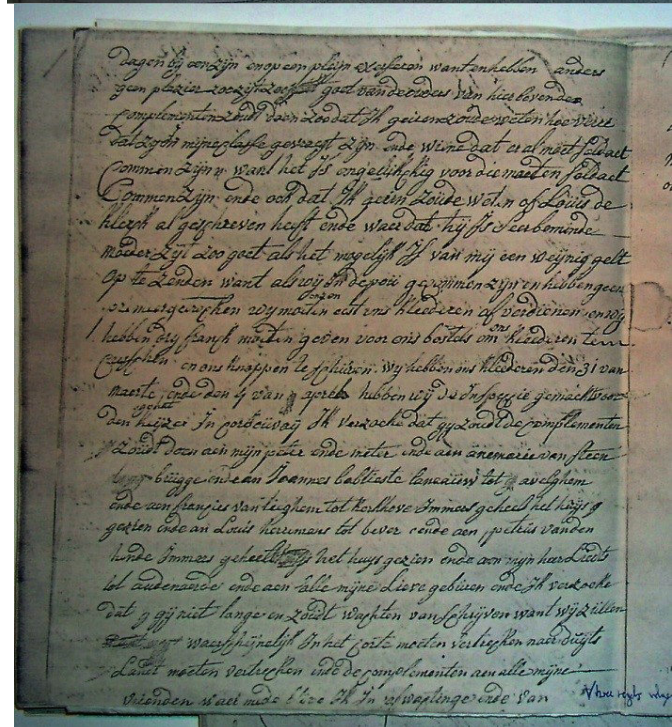 dagen bij een zijn en op een plijn exerseren want en hebben anders
geen plezier zoo zijt zoo goet van de ouders van hier boven de
complementen zoudt doen zoo dat Jk geiren zoude weten hoe verre
dat zij in mijne classe gevraegt zijn ende wie dat er al moet soldaet
Commen zijn want het Js ongelijkkig voor die moeten soldaet
Commen zijn ende ook dat Jk geern zoude weten of Louis de
klerck al geschreven heeft ende waer dat hij Js seer beminde
moeder zijt zoo goet als het mogelijk Js van mij een weijnig gelt
op te zenden want als wij in depoo gecommen zijn en hebben geen
gekreken wij moeten eerst ons kleederen af verdienen en wij
hebben drij franck moeten geven voor ons bostels om ons kleederen te
en ons knoppen te schuiren wij hebben ons kleederen den 31 van
maerte ende den 4 van april hebben wij de Jnspexie gemackt voor
den keijzer Jn Jk verzoeke dat gij zoudt de complementen
zoudt doen aen mijn peter ende meter ende aen anemarie van steen
brugge ende an Joannes babtieste tot avelghem
ende aen fransies van tieghem tot kerkhove Jmmers geheel het huijs
gezien ende an Louis herremans tot bever ende aen petrus vanden
hende Jmmers geheel het huys gezien ende aen mijn heer Liedts
tot audenaerde ende aen alle mijne Lieve gebiuren ende Jk verzoeke
dat g gij niet lange en zoudt wachten van schrijven want wij zullen
waerschijnelijk Jn het corte moeten vertrekken naer duijts
Landt moeten vertrekken ende de complementen aen alle mijne
vrienden waer mede blive Jk Jn afwagtinge ende van